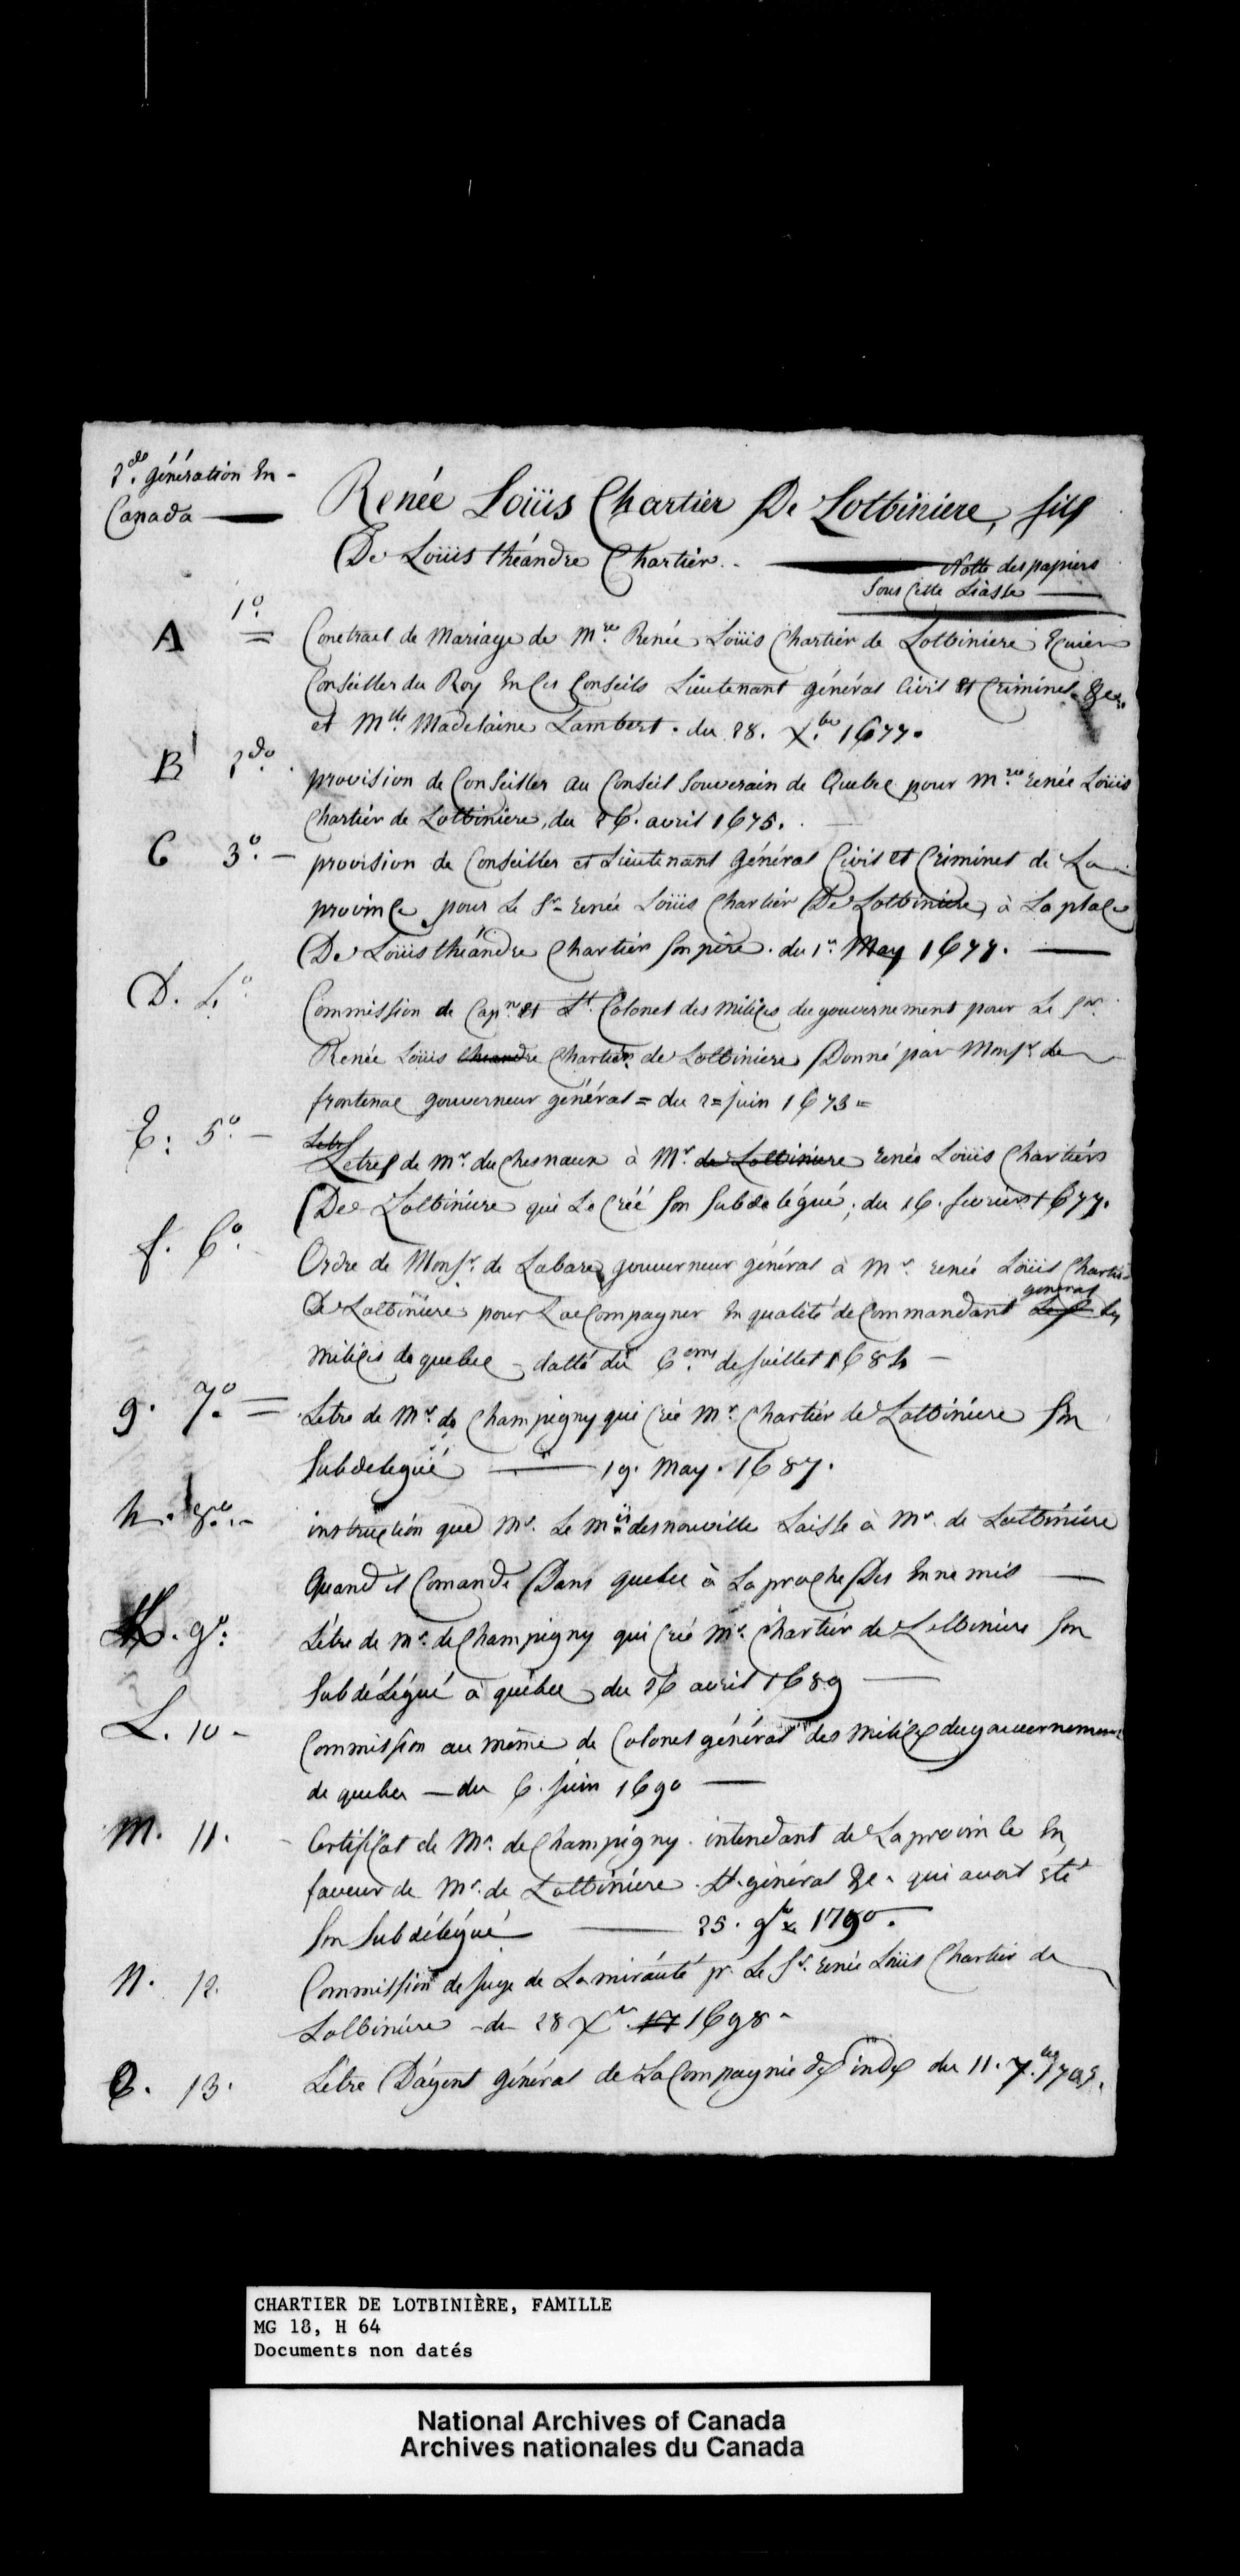 2.de génération En -
Canada —
Renée Loüis Chartier De Lotbiniere, fils
De Loüis théandre Chartier. -
Notte des papiers
Sous Cette Liasse —
A 1.o = Conctract de Mariage de Mre. Renée Loüis Chartier de Lotbiniere Ecuier
Conseiller du Roy En Ces Conseils Lieutenant général Civil et Criminel &c.
et Mlle. Madelaine Lambert. du 28. Xbre 1677.
B 2.do provision de Conseiller au Conseil Souverain de Quebec pour Mre renée Loüis
Chartier de Lotbiniere, du 26. avril 1675.
C 3.o — provision de Conseiller et Lieutenant Général Civil et Criminel de La
province pour Le Sr. renée Loüis Chartier De Lotbiniere, à La place
De Loüis théandre Chartier son père. du 1er May 1677. —
D. 4.o Commission de Capne. et Lt. Colonel des milices du gouvernement pour Le Sr.
Renée Loüis theandre Chartier de Lotbiniere Donné par Monsr. de
frontenac gouverneur général = du 2 = juin 1673 =
E: 5.o — Letre
Letres de mr. du Chesnaux à Mr. de Lotbiniere renée Loüis Chartiers
De Lotbiniere qui Le Créé Son Subdelégué; du 16. fevrier 1677.
f. 6.o Ordre de Monsr. de Labare gouverneur général à Mr. renée Loüis Chartier
général
De Lotbiniere pour L'acCompagner En qualité de Commandant Les
milices de quebec - datté du 6.eme de juillet 1684 —
g. 7.o = Letre de Mr. de Champigny qui Créé Mr. Chartier de Lotbiniere Son
Subdelegué — 19. May. 1687.
h. 8.o - instruction que Mr. Le mis. desnonville Laisse à Mr. de Lotbiniere
Quand il Comande Dans quebec à La proche Des Ennemis —
K. 9.o: Létre de Mr. de Champigny qui Créé Mr. Chartier de Lotbiniere Son
Subdélégué à québec du 26 avril 1689 —
L. 10 - Commission au même de Colonel général des milices du gouvernement
de quebec — du 6. juin 1690 —
M. 11. - Certificat de Mr. de Champigny. intendant de La province En
faveur de Mr. de Lotbiniere. Lt. général &c. qui avoit Eté
Son Subdélégué — 25. 9bre 1790.
N. 12. Commission de juge de Lamirauté pr. Le Sr. renée Loüis Chartier de
Lotbiniere - de 28 Xre. 17 1698 -
O. 13. Létre D'agent général de La Compagnie des indes du 11. 7.bre
CHARTIER DE LOTBINIÈRE, FAMILLE
MG 18, H 64
Documents non datés
National Archives of Canada
Archives nationales du Canada